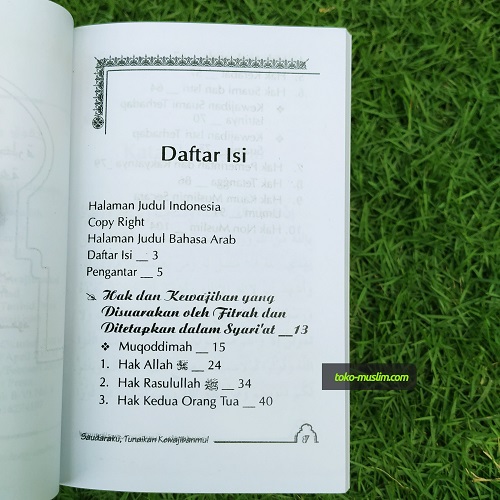 Daftar Isi
Halaman Judul Indonesia
Copy Right
Halaman Judul Bahasa Arab
Daftar Isi __ 3
Pengantar __ 5
Hak dan Kewajiban yang
Disuarakan oleh Fitrah dan
Ditetapkan dalam Syari'at __13
❖ Muqoddimah __ 15
1. Hak Allah ﷻ __ 24
2. Hak Rasulullah ﷺ __ 34
3. Hak Kedua Orang Tua __ 40
toko-muslim.com
Saudaraku, Tunaikan Kewajibanmu!